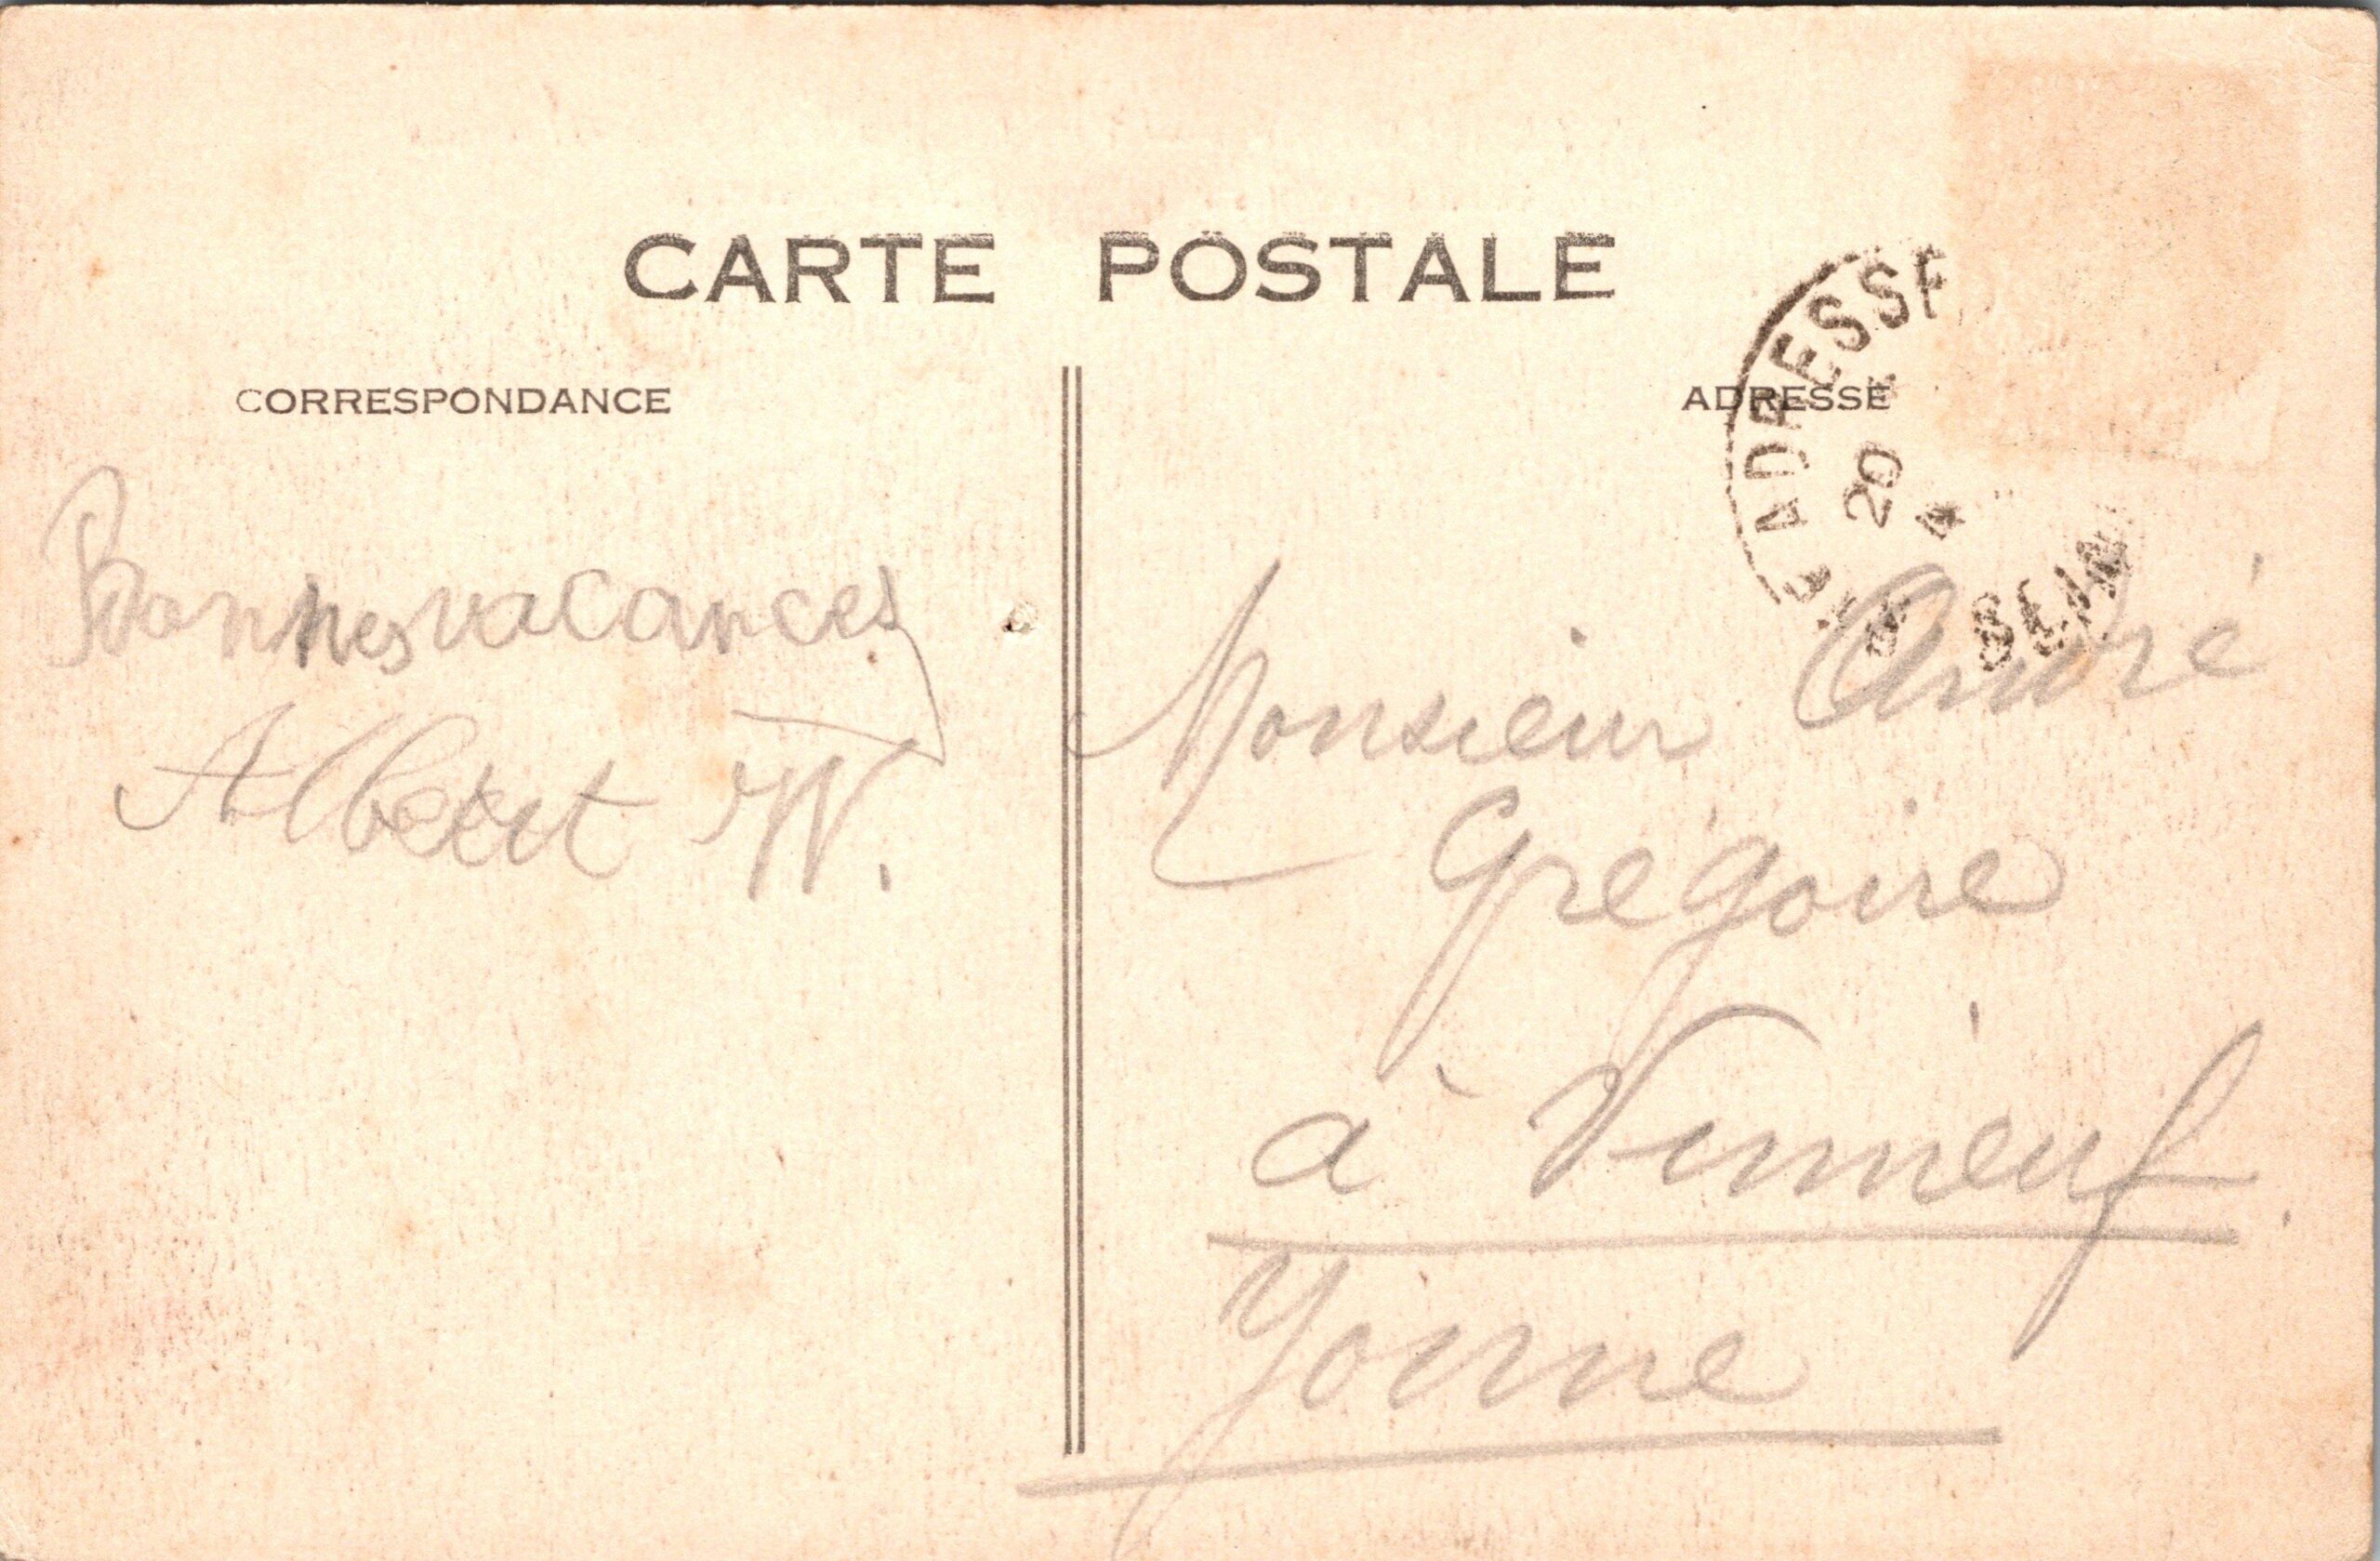 CARTE POSTALE
CORRESPONDANCE
ADRESSE
STE ADRESSE
20
SEINE
Bonnes vacances
Albert W.
Monsieur André
Grégoire
à Vinneuf
Yonne